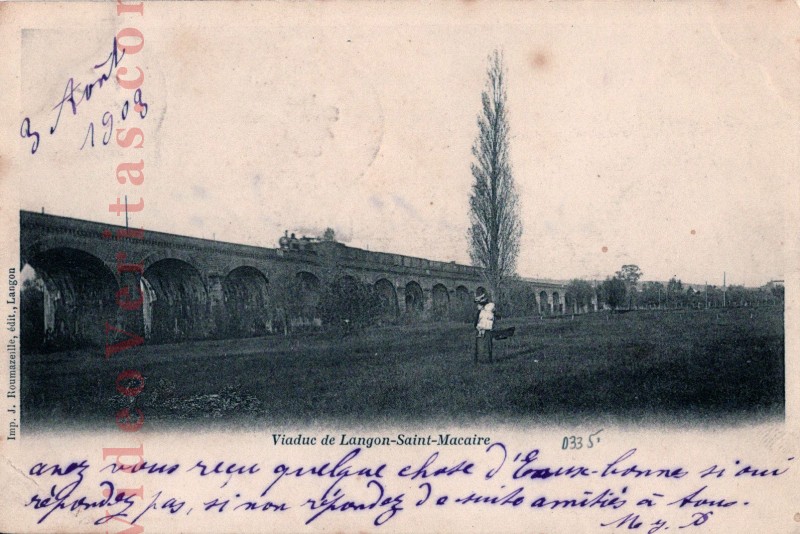 3 Août
1903
videoveritas.com
Imp. J. Roumazeille, édit., Langon
Viaduc de Langon-Saint-Macaire
0335
avez vous reçu quelque chose d'Eaux-bonne si oui
répondez pas, si non répondez de suite amitiés à tous.